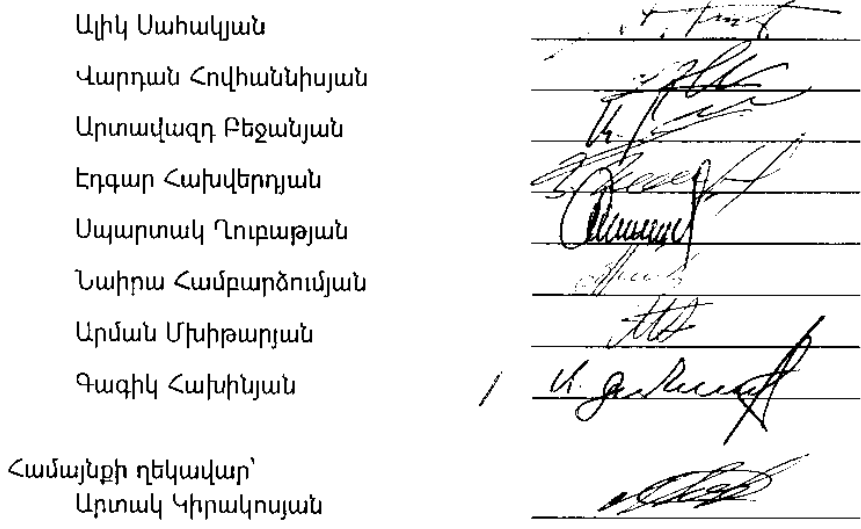 Ալիկ Սահակյան
Վարդան Հովհաննիսյան
Արտավազդ Բեջանյան
Էդգար Հախվերդյան
Սպարտակ Ղուբաթյան
Նաիրա Համբարձումյան
Արման Մխիթարյան
Գագիկ Հախինյան
Համայնքի ղեկավար՝
Արտակ Կիրակոսյան